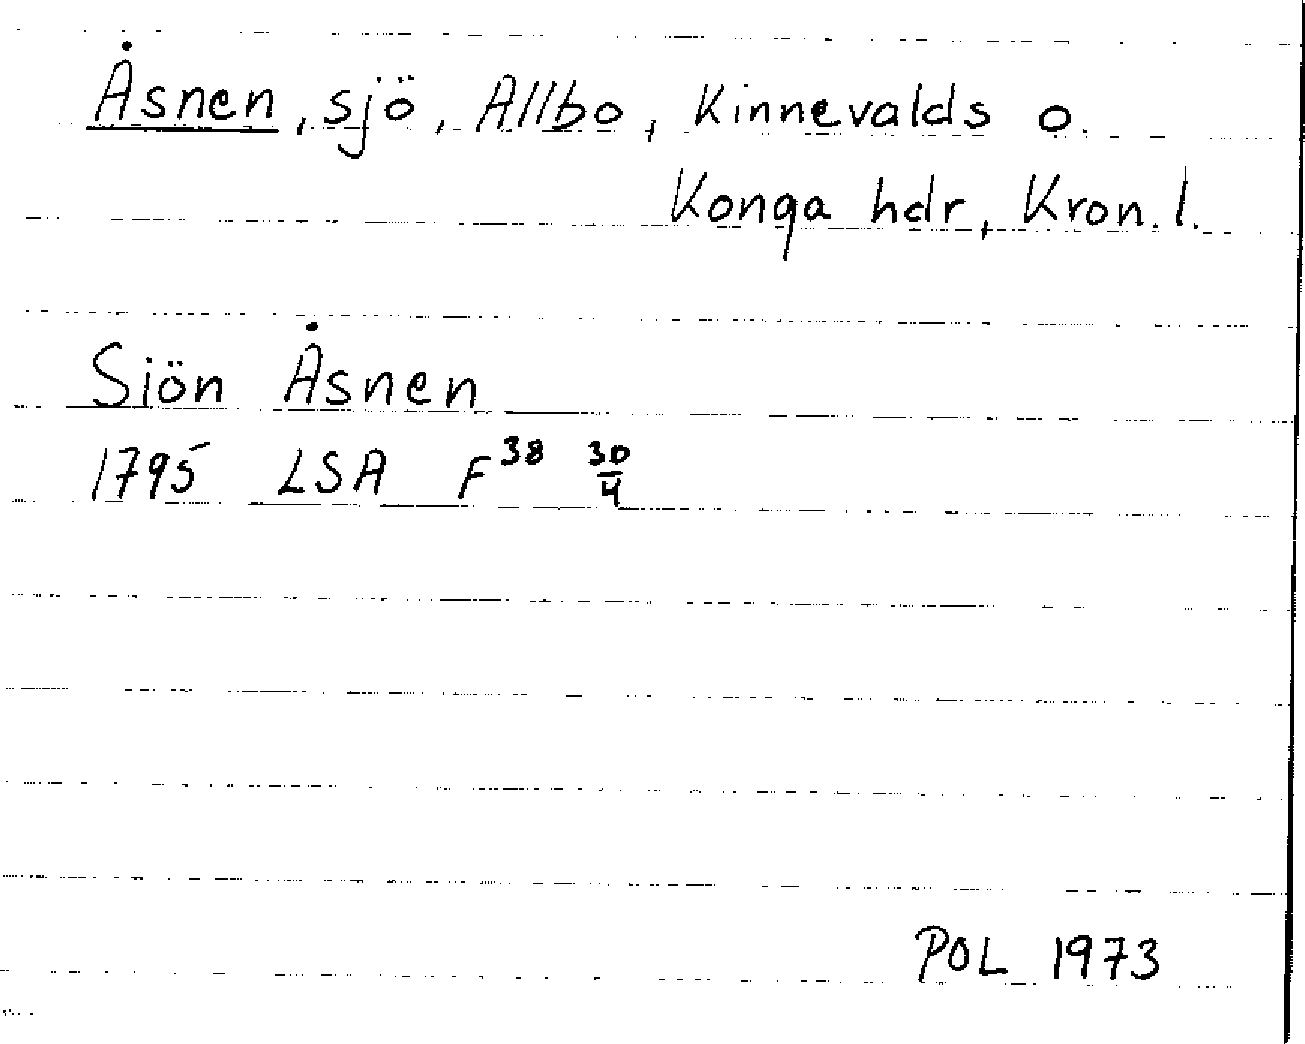 Åsnen, sjö, Allbo, Kinnevalds o.
Konga hdr, Kron. l.
Siön Åsnen
1795 LSA F³⁸ 30/4
POL 1973